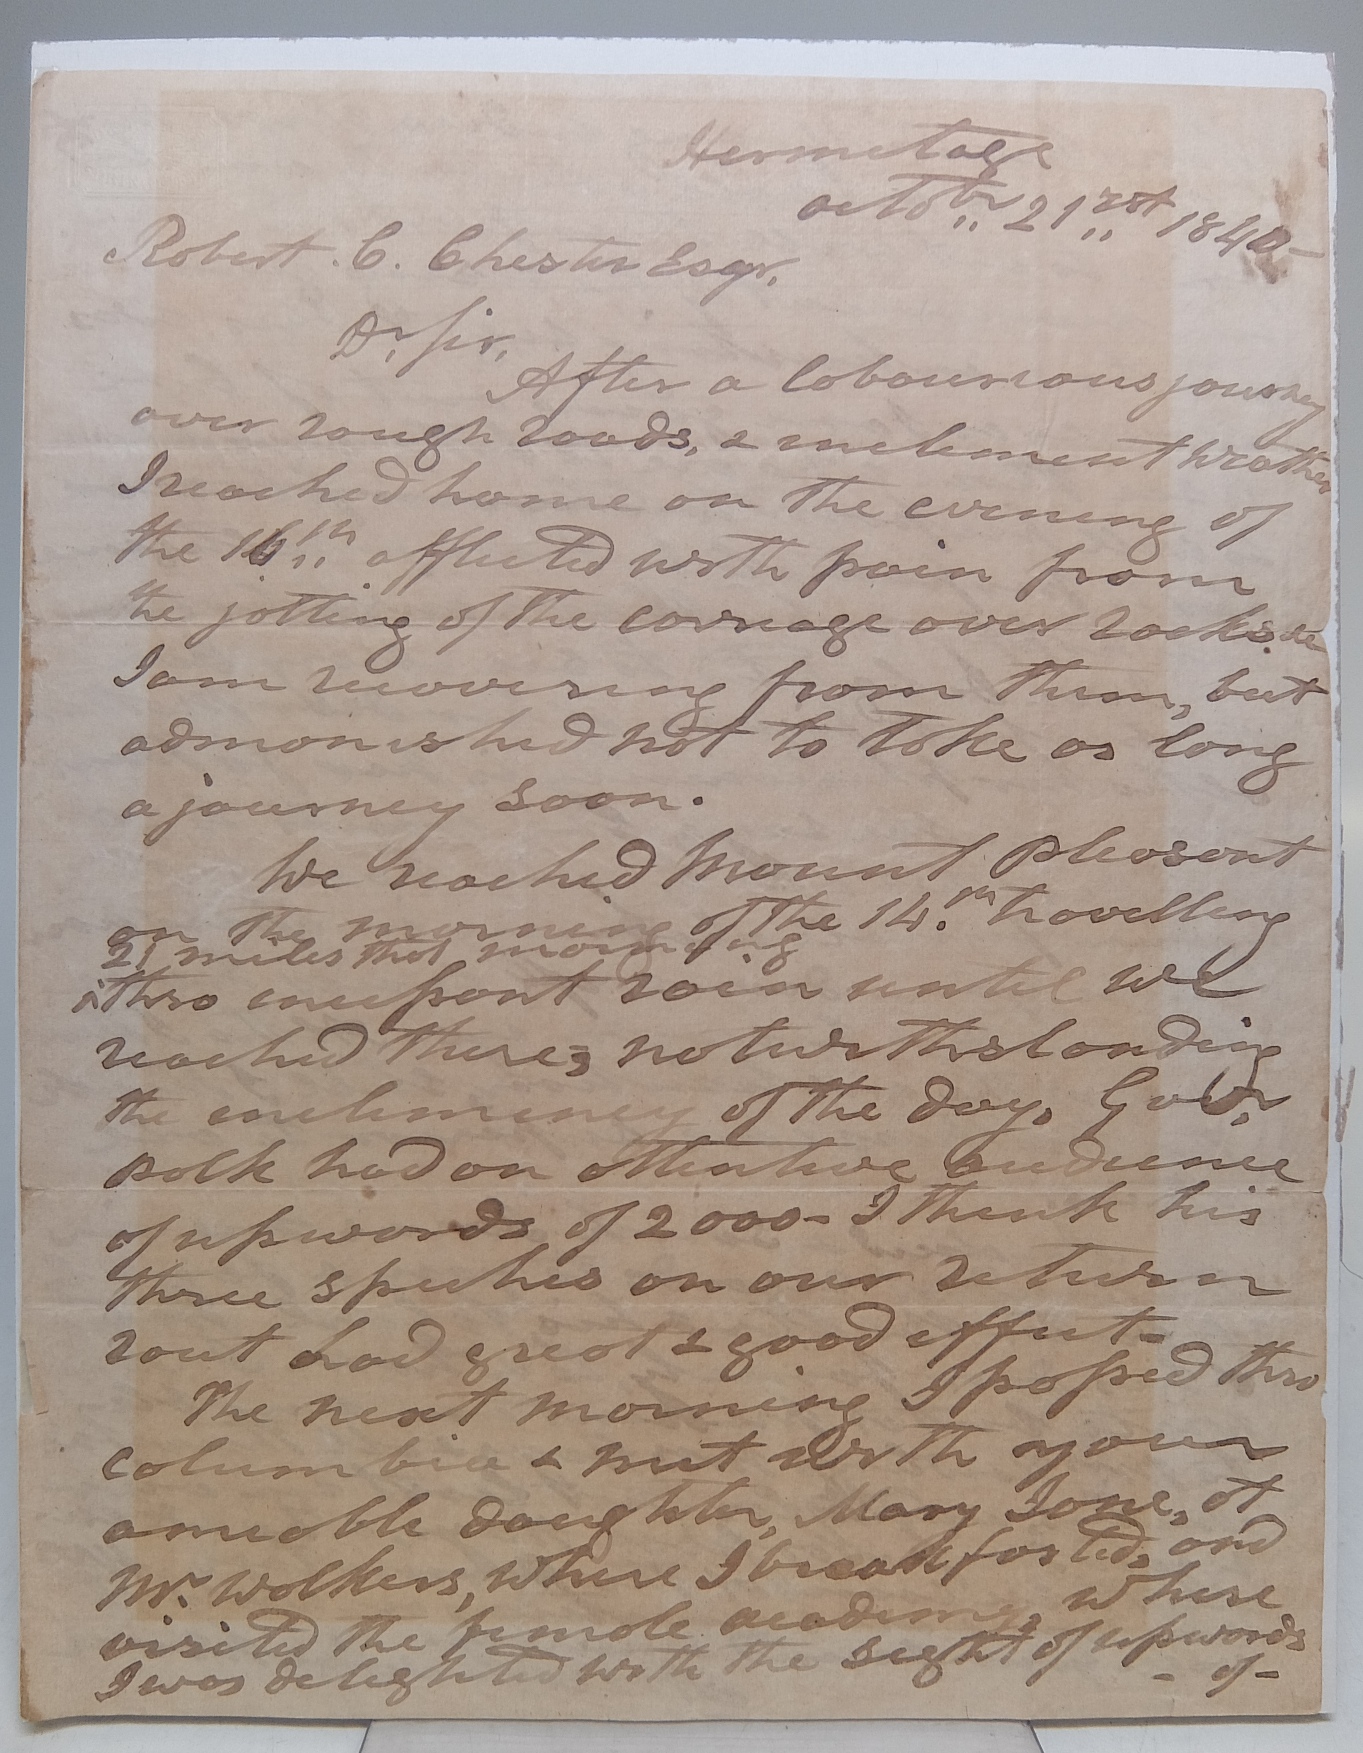 Hermitage
octobr 21rst 1840-
Robert. C. Chester Esqr,
Dr, Sir,
After a labourious journey
over rough roads, & inclement weather
I reached home on the evening of
the 16th afflicted with pain from
the jotting of the carriage over rocks &c
I am recovering from them, but
admonished not to take as long
a journey soon.
We reached Mount pleasant
on the morning of the 14.th travelling
21 miles that morning
thro incessant rain until we
reached there; notwithstanding
the inclemency of the day, Govr,
polk had an attentive audience
of upwards of 2000- I think his
three speeches on our return
rout had great & good effect-
The next morning I passed thro
columbia & met with your
amiable daughter, Mary Jane, at
Mr. Walkers, where I breakfasted, and
visited the female academy, where
I was delighted with the sight of upwards
- of -